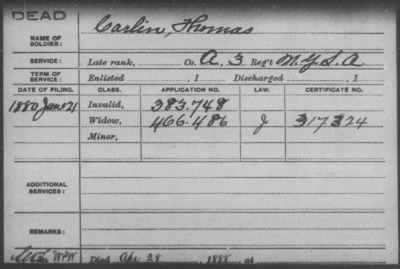 DEAD
Carlin, Thomas
NAME OF SOLDIER:
SERVICE: Late rank, Co. A, 3 Reg't N.Y.L.A.
TERM OF SERVICE: Enlisted , 1 Discharged , 1
DATE OF FILING. CLASS. APPLICATION NO. LAW. CERTIFICATE NO.
1880 June 21 Invalid, 383.748
Widow, 466.486 J 317324
Minor,
ADDITIONAL SERVICES:
REMARKS:
Died Apr. 28, 1888, at